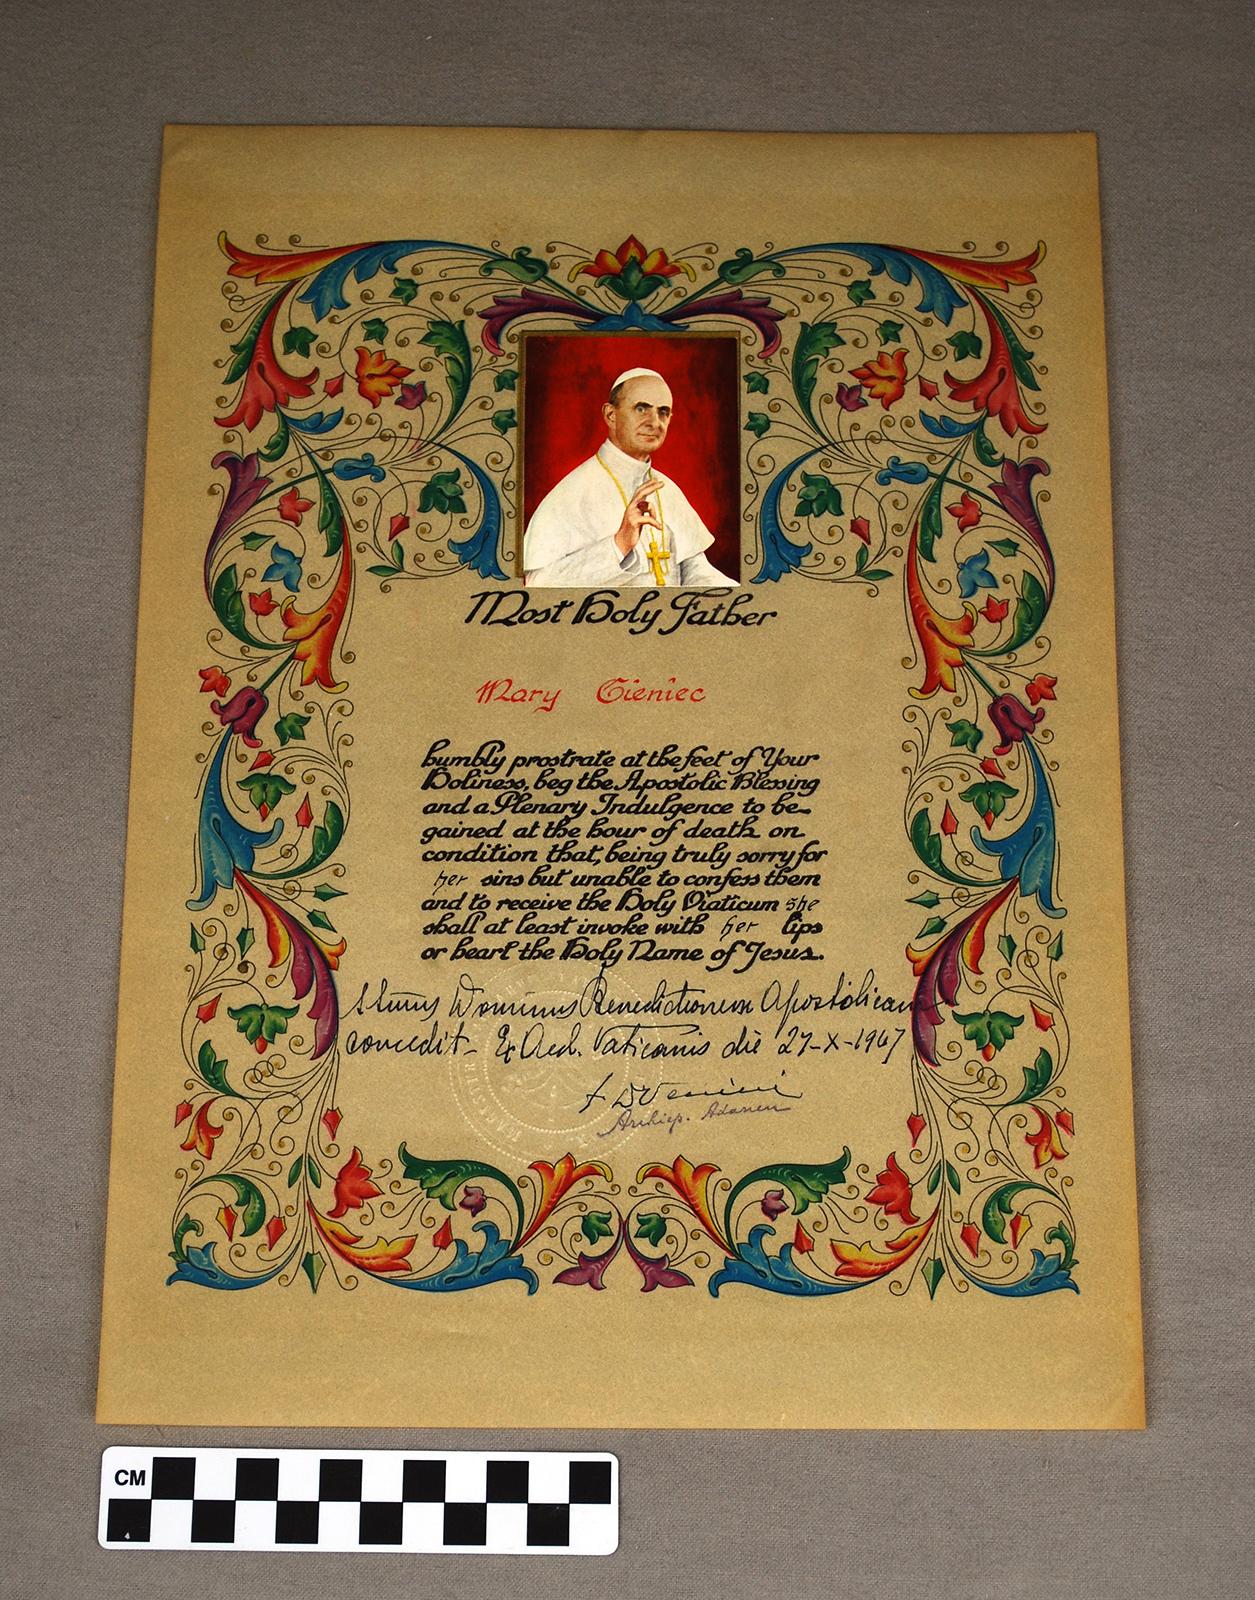 Most Holy Father
Mary Cieniec
humbly prostrate at the feet of Your
Holiness, beg the Apostolic Blessing
and a Plenary Indulgence to be
gained at the hour of death on
condition that, being truly sorry for
her sins but unable to confess them
and to receive the Holy Viaticum she
shall at least invoke with her lips
or heart the Holy Name of Jesus.
Dominus Benedictionem Apostolicam
concedit - Ex Aed. Vaticanis die 27-X-1967
Archiep. Adanen
CM